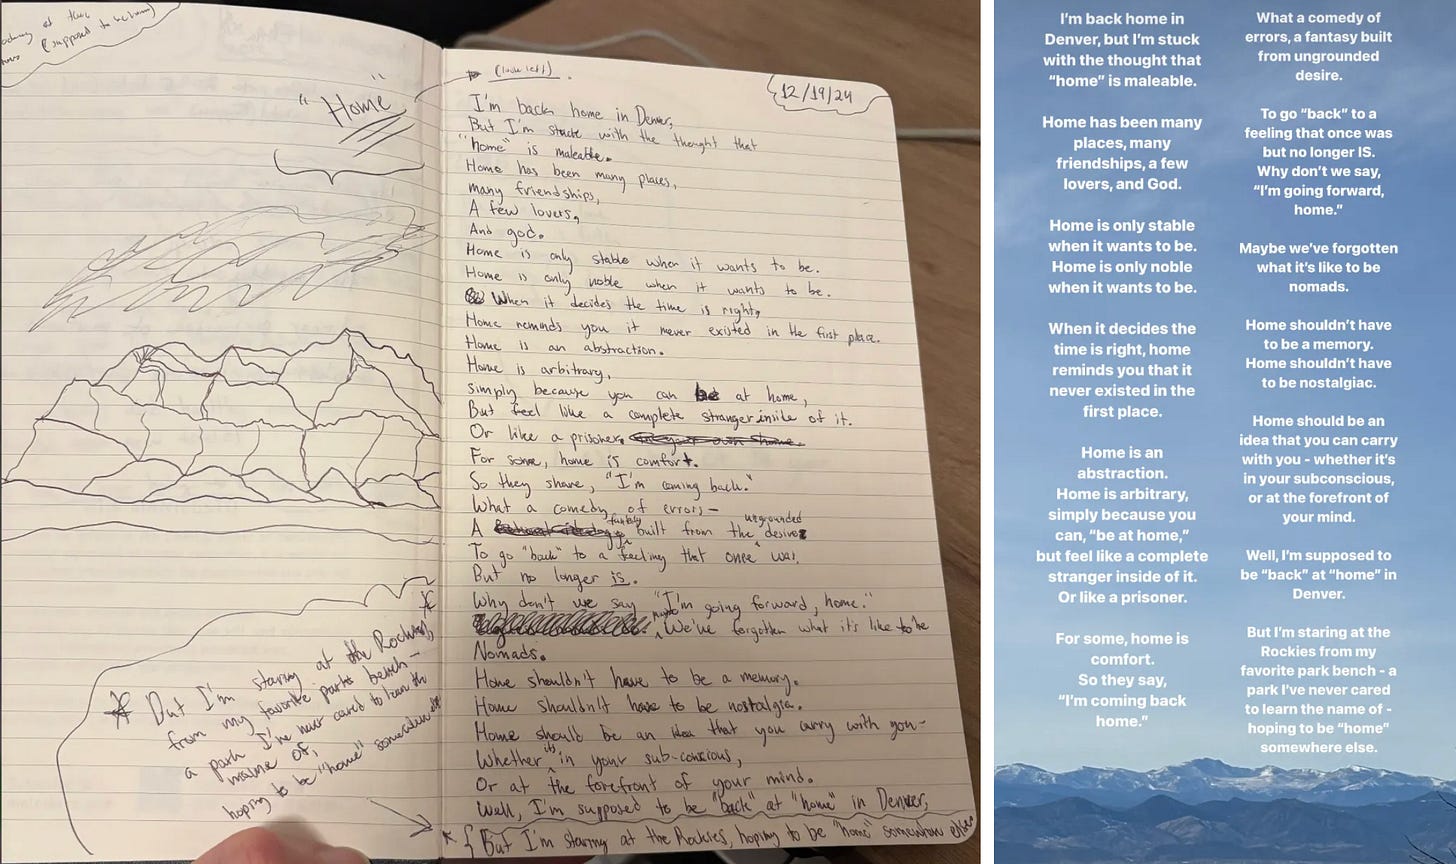 at the
(supposed to be home)
"Home"
* But I'm staring at the Rockies,
from my favorite parks bench—
a park I've never cared to learn the
name of,
hoping to be "home" somewhere
(look left).
12/19/24
I'm back home in Denver,
But I'm stuck with the thought that
"home" is maleable.
Home has been many places,
many friendships,
A few lovers,
And god.
Home is only stable when it wants to be.
Home is only noble when it wants to be.
When it decides the time is right,
Home reminds you it never existed in the first place.
Home is an abstraction.
Home is arbitrary,
simply because you can be at home,
But feel like a complete stranger inside of it.
Or like a prisoner.
For some, home is comfort.
So they share, "I'm coming back."
What a comedy of errors—
A fantasy built from the ungrounded desire
To go "back" to a feeling that once was
But no longer is.
Why don't we say "I'm going forward, home."
maybe We've forgotten what it's like to be
Nomads.
Home shouldn't have to be a memory.
Home shouldn't have to be nostalgia.
Home should be an idea that you carry with you—
Whether its in your sub-conscious,
Or at the forefront of your mind.
Well, I'm supposed to be "back" at "home" in Denver,
* { But I'm staring at the Rockies, hoping to be "home" somewhere else.
I'm back home in
Denver, but I'm stuck
with the thought that
“home” is maleable.
Home has been many
places, many
friendships, a few
lovers, and God.
Home is only stable
when it wants to be.
Home is only noble
when it wants to be.
When it decides the
time is right, home
reminds you that it
never existed in the
first place.
Home is an
abstraction.
Home is arbitrary,
simply because you
can, “be at home,”
but feel like a complete
stranger inside of it.
Or like a prisoner.
For some, home is
comfort.
So they say,
“I'm coming back
home.”
What a comedy of
errors, a fantasy built
from ungrounded
desire.
To go “back” to a
feeling that once was
but no longer IS.
Why don't we say,
“I'm going forward,
home.”
Maybe we've forgotten
what it's like to be
nomads.
Home shouldn't have
to be a memory.
Home shouldn't have
to be nostalgiac.
Home should be an
idea that you can carry
with you - whether it's
in your subconscious,
or at the forefront of
your mind.
Well, I'm supposed to
be “back” at “home” in
Denver.
But I'm staring at the
Rockies from my
favorite park bench - a
park I've never cared
to learn the name of -
hoping to be “home”
somewhere else.